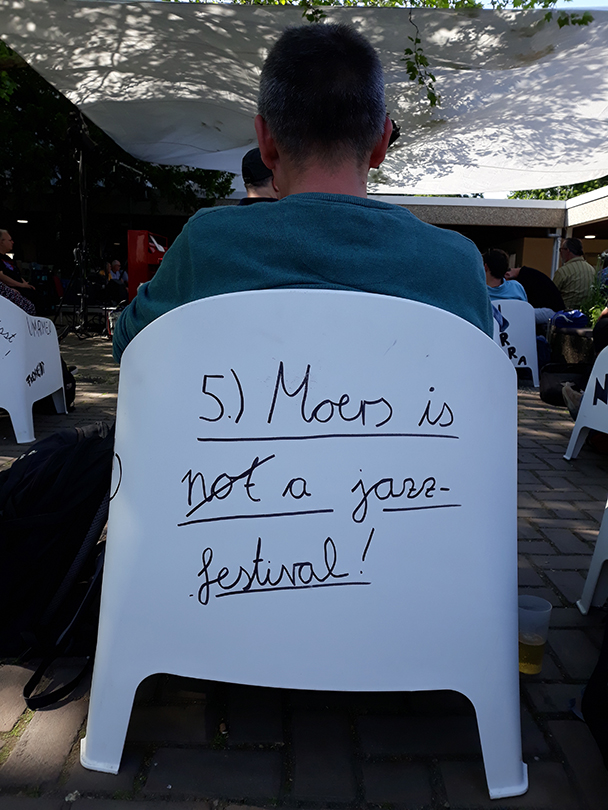 5.) Moers is
not a jazz-
festival!